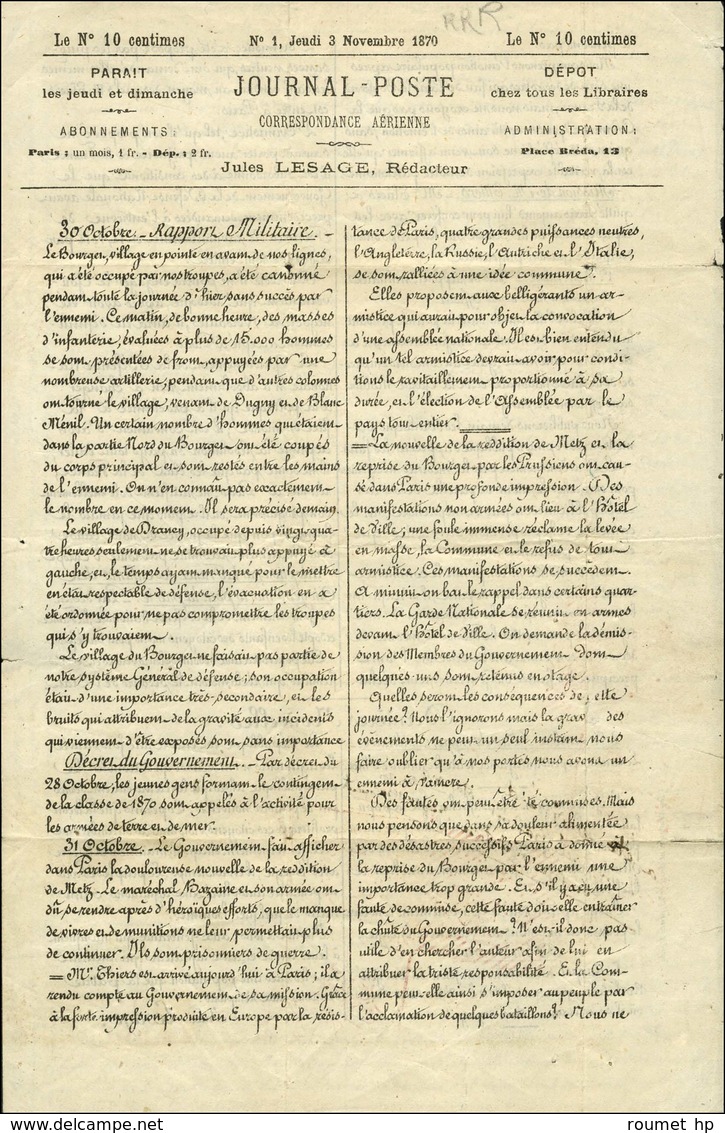 RRR
Le N° 10 centimes
N° 1, Jeudi 3 Novembre 1870
Le N° 10 centimes
PARAIT
les jeudi et dimanche
ABONNEMENTS:
Paris: un mois, 1 fr. - Dép.: 2 fr.
JOURNAL-POSTE
CORRESPONDANCE AÉRIENNE
Jules LESAGE, Rédacteur
DÉPOT
chez tous les Libraires
ADMINISTRATION:
Place Bréda, 13
30 Octobre. - Rapport Militaire. -
Le Bourget, village en pointe en avant de nos lignes,
qui a été occupé par nos troupes, a été canonné
pendant toute la journée d'hier sans succès par
l'ennemi. Ce matin, de bonne heure, des masses
d'infanterie, évaluées à plus de 15.000 hommes
se sont présentées de front, appuyées par une
nombreuse artillerie; pendant que d'autres colonnes
ont tourné le village, venant de Dugny et de Blanc
Ménil. Un certain nombre d'hommes qui étaient
dans la partie Nord du Bourget ont été coupés
du corps principal et sont restés entre les mains
de l'ennemi. On n'en connait pas exactement
le nombre en ce moment. Il sera précisé demain.
Le village de Drancy, occupé depuis vingt-qua-
tre heures seulement ne se trouvait plus appuyé à
gauche, et, le temps ayant manqué pour le mettre
en état respectable de défense, l'évacuation en a
été ordonnée pour ne pas compromettre les troupes
qui s'y trouvaient.
Le village du Bourget ne faisait pas partie de
notre système Général de défense; son occupation
était d'une importance très-secondaire, et les
bruits qui attribuent de la gravité aux incidents
qui viennent d'être exposés sont sans importance
Décret du Gouvernement. - Par décret du
28 Octobre, les jeunes gens formant le contingent
de la classe de 1870 sont appelés à l'activité pour
les armées de terre et de mer.
31 Octobre. - Le Gouvernement fait afficher
dans Paris la douloureuse nouvelle de la reddition
de Metz. Le maréchal Bazaine et son armée ont
dû se rendre après d'héroïques efforts, que le manque
de vivres et de munitions ne leur permettait plus
de continuer. Ils sont prisonniers de guerre.
= Mr. Thiers est arrivé aujourd'hui à Paris; il a
rendu compte au Gouvernement de sa mission. Grâce
à la forte impression produite en Europe par la résis-
tance de Paris, quatre grandes puissances neutres,
l'Angleterre, la Russie, l'Autriche et l'Italie,
se sont ralliées à une idée commune.
Elles proposent aux belligérants un ar-
mistice qui aurait pour objet la convocation
d'une assemblée nationale. Il est bien entendu
qu'un tel armistice devrait avoir pour condi-
tions le ravitaillement proportionné à sa
durée, et l'élection de l'Assemblée par le
pays tout entier.
= La nouvelle de la reddition de Metz et la
reprise du Bourget par les Prussiens ont cau-
sé dans Paris une profonde impression. Des
manifestations non armées ont lieu à l'Hôtel
de Ville; une foule immense réclame la levée
en masse, la Commune et le refus de tout
armistice. Ces manifestations se succèdent.
A minuit on bat le rappel dans certains quar-
tiers. La Garde Nationale se réunit en armes
devant l'Hôtel de Ville. On demande la démis-
sion des Membres du Gouvernement dont
quelques-uns sont retenus en otage.
Quelles seront les conséquences de cette
journée? Nous l'ignorons mais la grav des
évènements ne peut un seul instant nous
faire oublier qu'à nos portes nous avons un
ennemi à vaincre.
Des fautes ont peut être été commises. Mais
nous pensons que dans sa douleur alimentée
par des désastres successifs Paris a donné à
la reprise du Bourget par l'ennemi une
importance trop grande. Et s'il y a eu une
faute de commise, cette faute doit-elle entraîner
la chûte du Gouvernement? N'est-il donc pas
utile d'en chercher l'auteur afin de lui en
attribuer la triste responsabilité. Et la Com-
mune peut-elle ainsi s'imposer au peuple par
l'acclamation de quelques bataillons? Nous ne
roumet hp